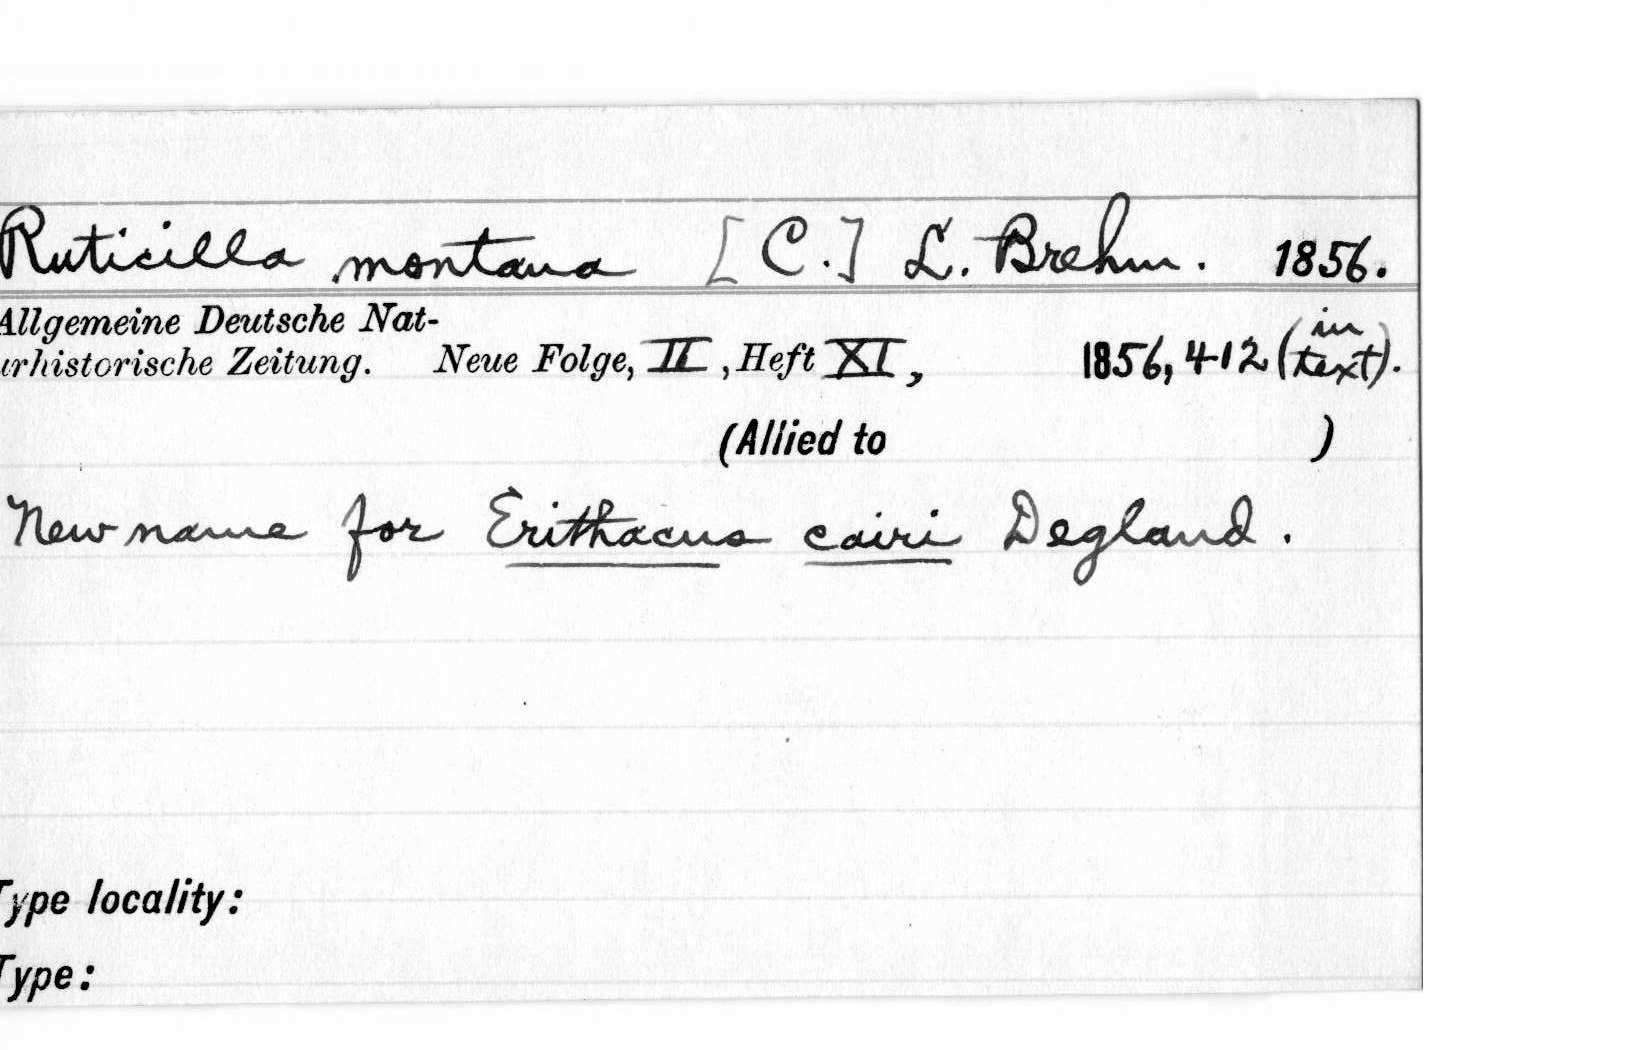 Ruticilla montana [C.] L. Brehm. 1856.
Allgemeine Deutsche Nat-
urhistorische Zeitung. Neue Folge, II, Heft XI, 1856, 412 (in text).
(Allied to )
New name for Erithacus cairi Degland.
Type locality:
Type: